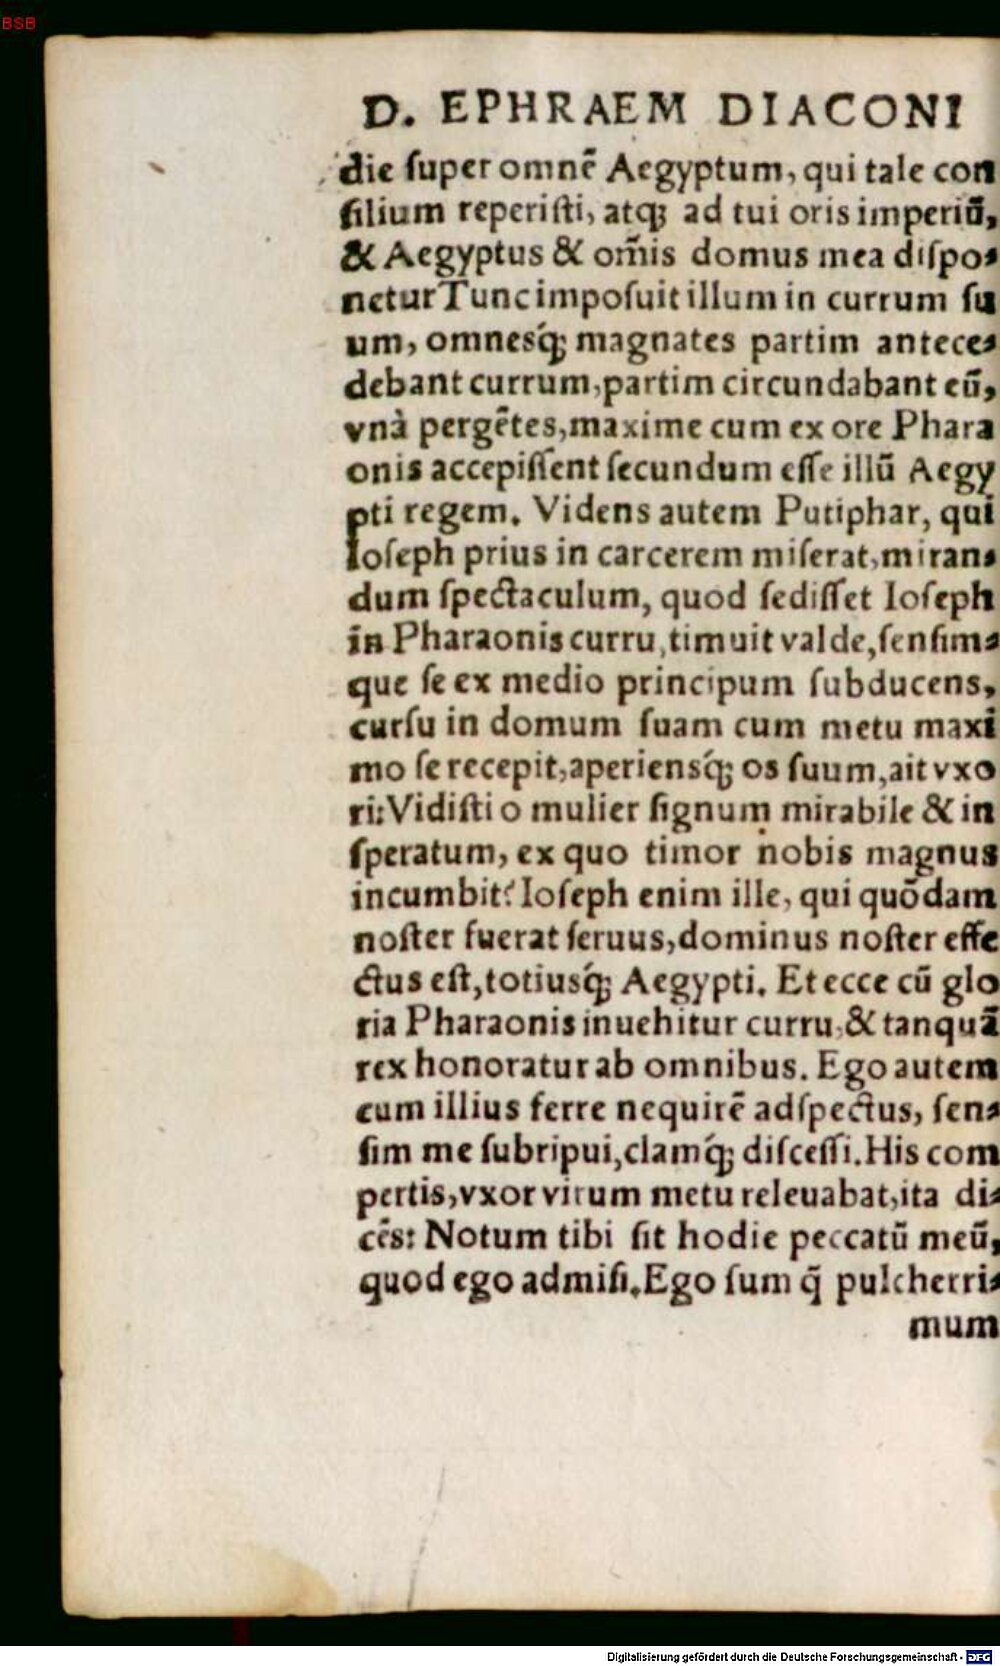 BSB
D. EPHRAEM DIACONI
die ſuper omnẽ Aegyptum, qui tale con
ſilium reperiſti, atq; ad tui oris imperiũ,
& Aegyptus & om̃is domus mea diſpo-
netur Tunc impoſuit illum in currum ſu
um, omnesq́; magnates partim antece-
debant currum, partim circundabant eũ,
vnà pergẽtes, maxime cum ex ore Phara
onis accepiſſent ſecundum eſſe illũ Aegy
pti regem. Videns autem Putiphar, qui
Ioſeph prius in carcerem miſerat, miran-
dum ſpectaculum, quod ſediſſet Ioſeph
in Pharaonis curru, timuit valde, ſenſim-
que ſe ex medio principum ſubducens,
curſu in domum ſuam cum metu maxi
mo ſe recepit, aperiensq́; os ſuum, ait vxo
ri: Vidiſti o mulier ſignum mirabile & in
ſperatum, ex quo timor nobis magnus
incumbit? Ioſeph enim ille, qui quõdam
noſter fuerat ſeruus, dominus noſter effe
ctus eſt, totiusq́; Aegypti. Et ecce cũ glo
ria Pharaonis inuehitur curru, & tanquã
rex honoratur ab omnibus. Ego autem
cum illius ferre nequirẽ adſpectus, ſen-
ſim me ſubripui, clamq́; diſceſſi. His com
pertis, vxor virum metu releuabat, ita di-
cẽs: Notum tibi ſit hodie peccatũ meũ,
quod ego admiſi. Ego ſum q̃ pulcherri-
mum
Digitalisierung gefördert durch die Deutsche Forschungsgemeinschaft - DFG